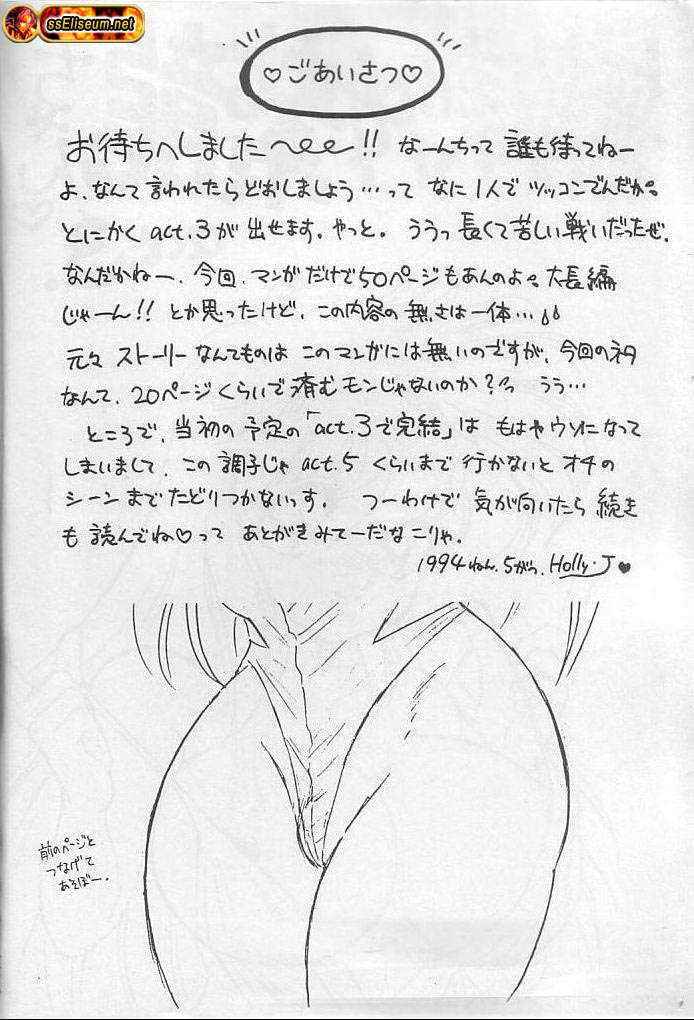 ssEliseum.net
♡ごあいさつ♡
お待ちへしました〜!! なーんちって 誰も待ってねー
よ、なんて言われたらどおしましょう…って なに1人で ツッコンでんだか。
とにかく act.3が 出せます。やっと。ううっ 長くて苦しい戦いだったぜ。
なんだかねー、今回、マンガだけで50ページもあんのよ。大長編
じゃーん!! とか思ったけど、この内容の無さは一体…
元々 ストーリーなんてものは このマンガには無いのですが、今回のネタ
なんて、20ページくらいで済むモンじゃないのか?っっ うう…
ところで、当初の予定の「act.3で完結」は もはやウソになって
しまいまして、この調子じゃ act.5 くらいまで行かないと オチの
シーンまでたどりつかないっす。 つーわけで 気が向いたら続き
も 読んでね♡って あとがきみてーだなこりゃ。
1994ねん.5がつ. Holly・J♥
前のページと
つなげて
あそぼー.